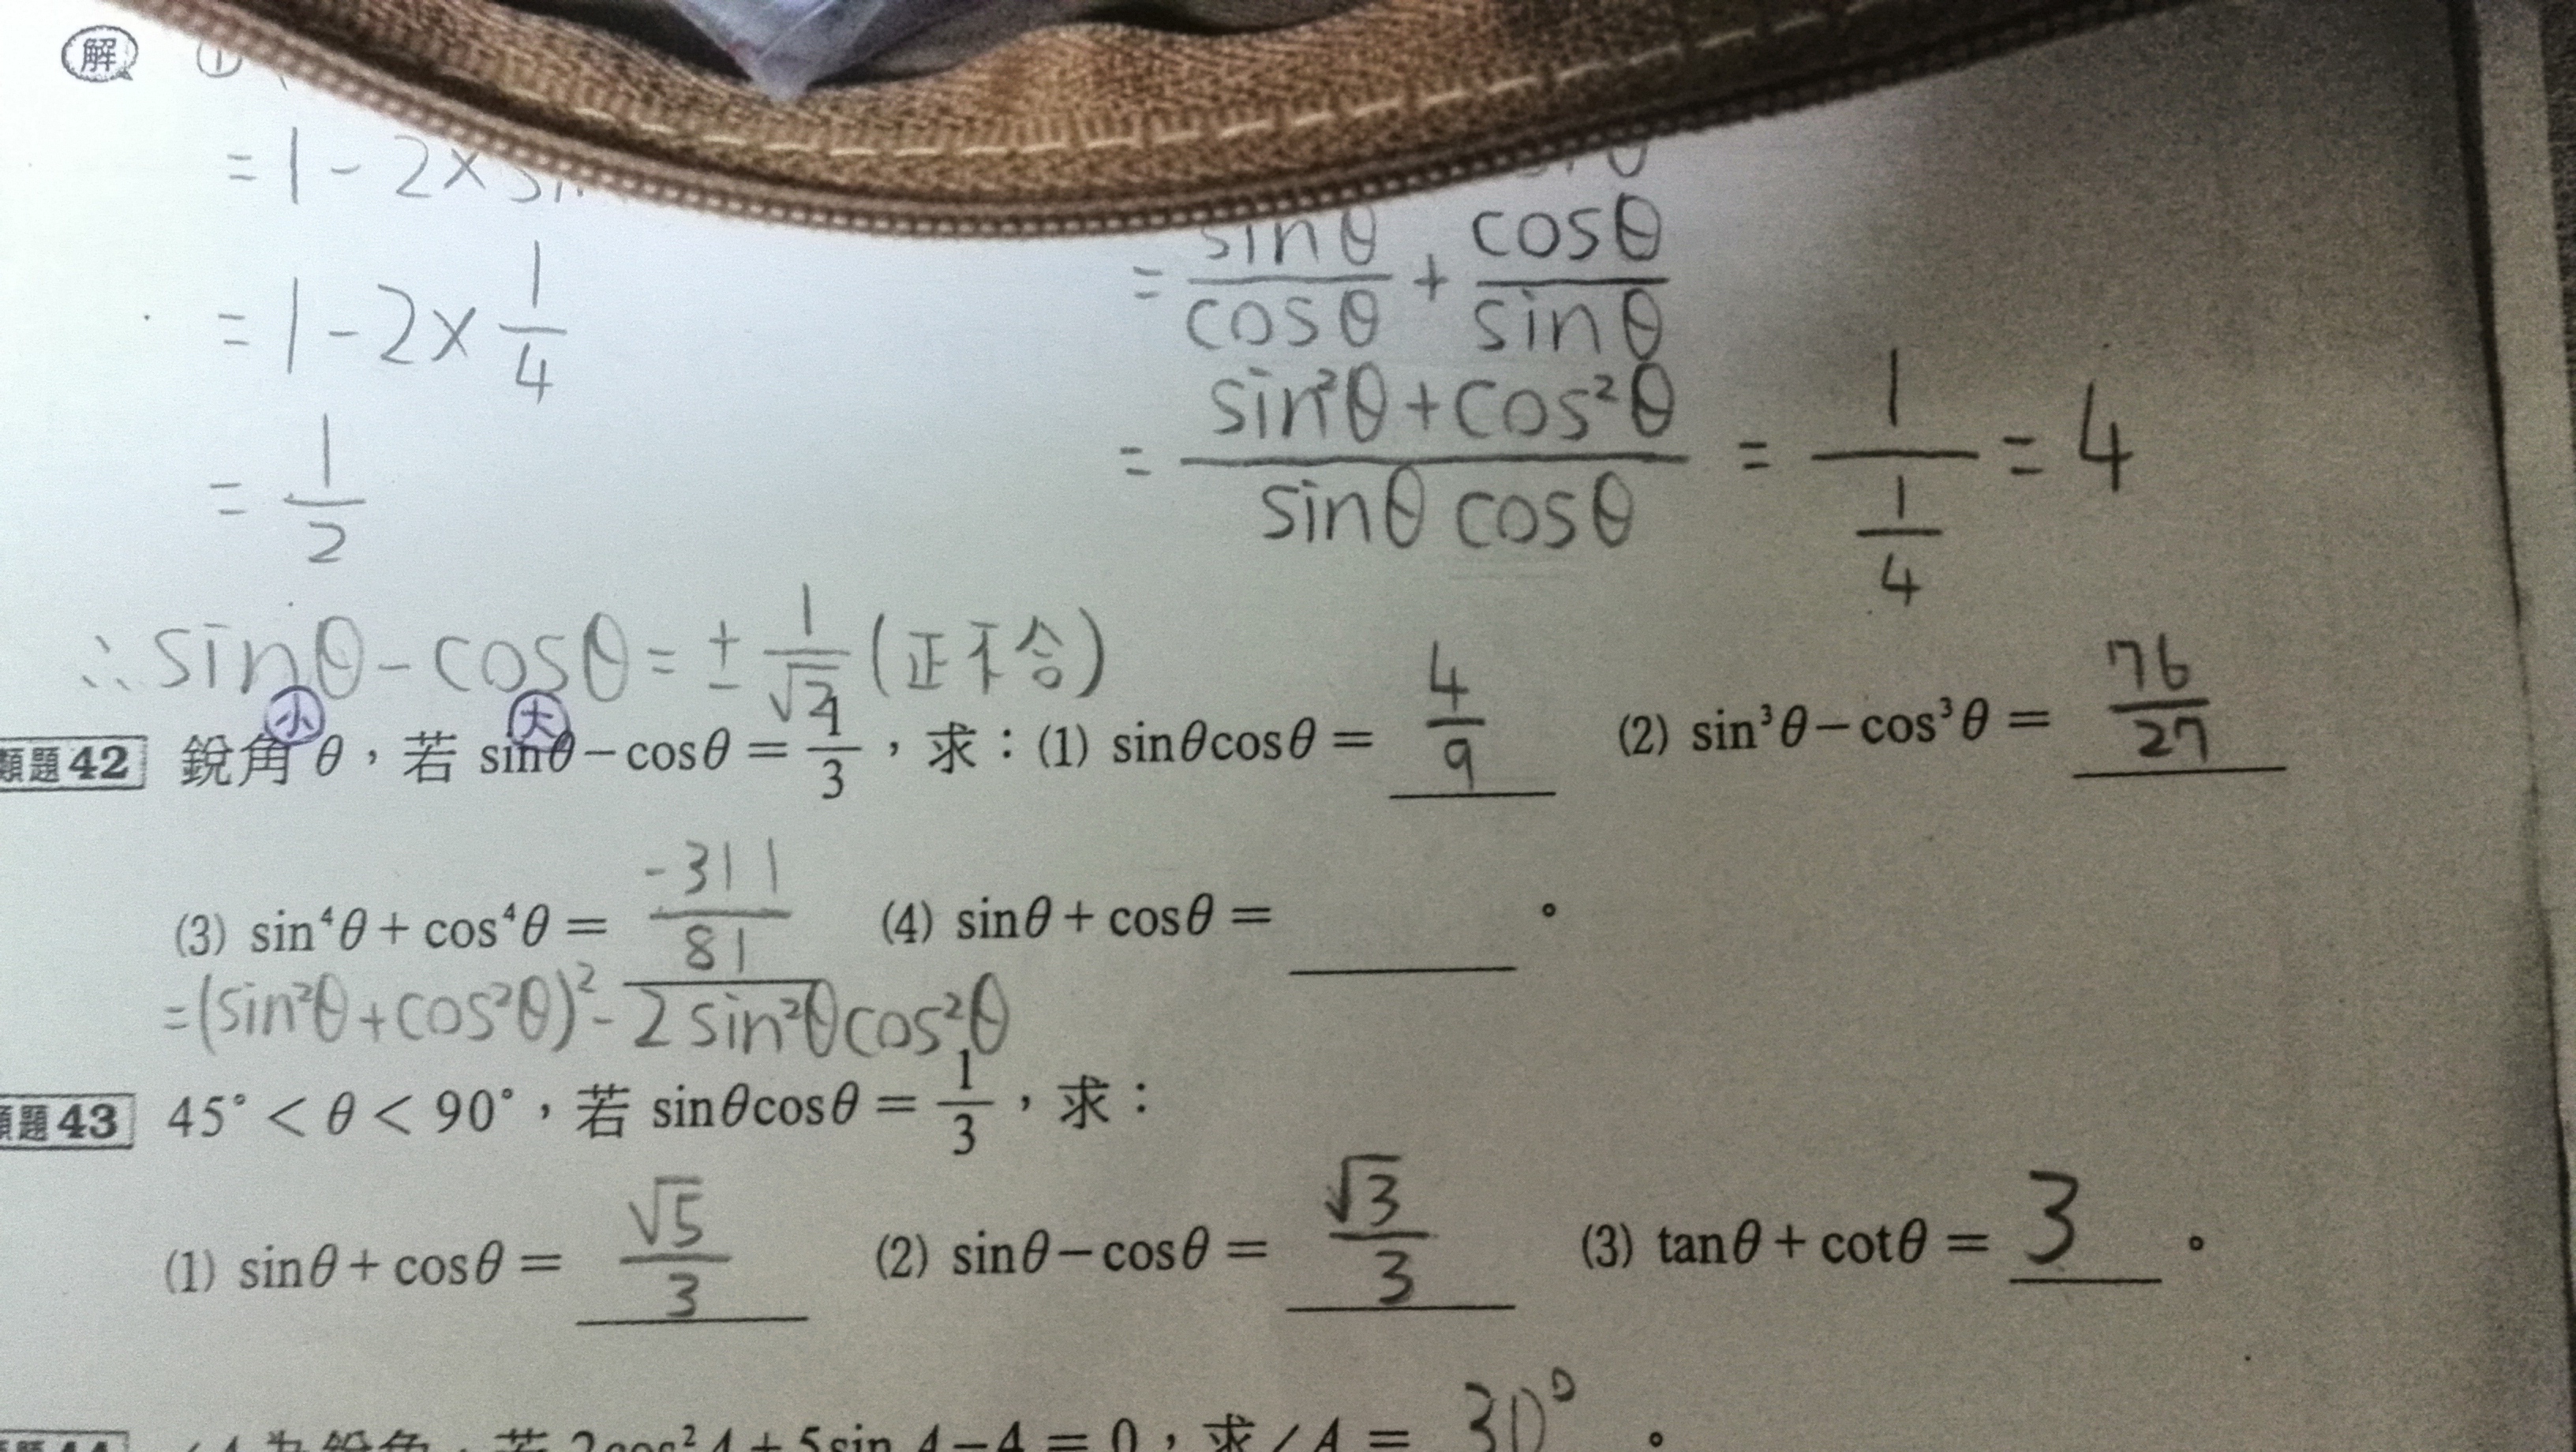 解 ①
= 1 - 2×
= 1 - 2×1/4
= 1/2
= sinθ/cosθ + cosθ/sinθ
= (sin²θ+cos²θ)/(sinθ cosθ) = 1/(1/4) = 4
∴ sinθ - cosθ = ± 1/√2 (正不合)
小 大
類題42 銳角 θ，若 sinθ－cosθ＝1/3，求：(1) sinθcosθ＝ 4/9 (2) sin³θ－cos³θ＝ 76/27
(3) sin⁴θ + cos⁴θ＝ -311/81 (4) sinθ + cosθ＝ 。
=(sin²θ+cos²θ)² - 2sin²θcos²θ
類題43 45°＜θ＜90°，若 sinθcosθ＝1/3，求：
(1) sinθ + cosθ＝ √5/3 (2) sinθ－cosθ＝ √3/3 (3) tanθ + cotθ＝ 3 。
為銳角，若 2cos²A + 5sin A－4＝0，求∠A＝ 30° 。